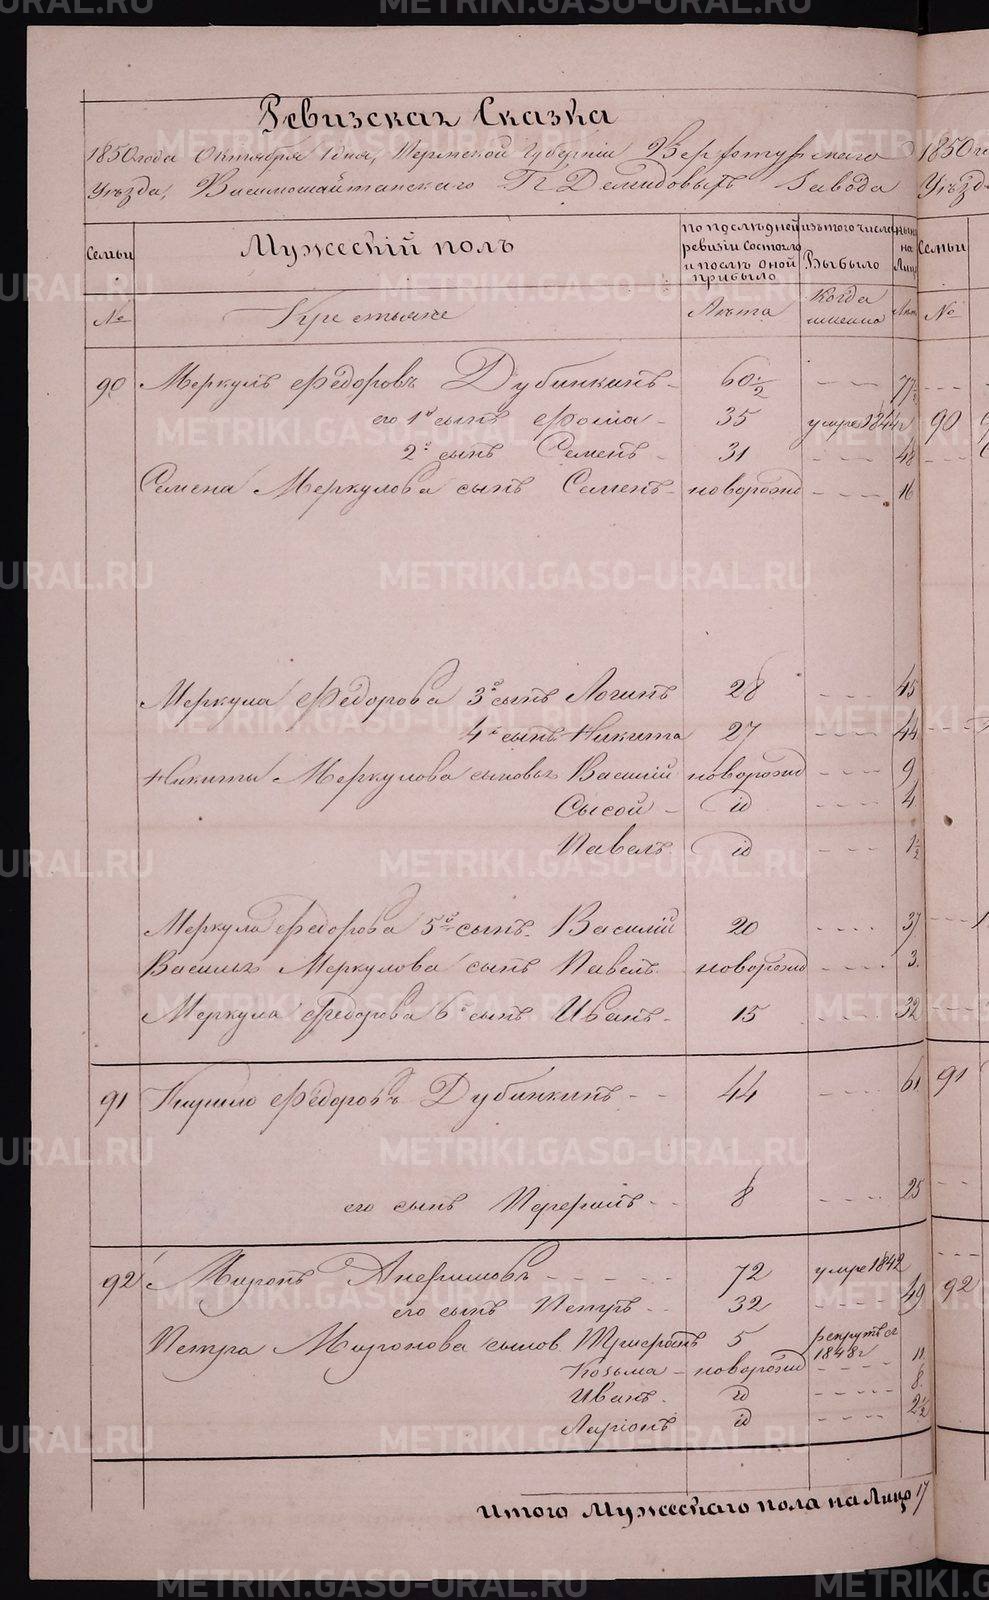 Ревизская Сказка
1850 года Октября 1 дня, Пермской Губернiи Верхотурскаго
Уѣзда, Висимошайтанскаго Гг Демидовыхъ Завода
Семьи
Мужескiй полъ
по послѣдней ревизiи состояло и послѣ оной прибыло
изъ того числа Выбыло
ныне на Лицо
№
Крестьяне
Лѣта
Когда именно
Лѣта
90 Меркулъ Федоровъ Дубинкинъ 60½ 77½
его 1й сынъ Фома 35 умре 1844 г
2й сынъ Семенъ 31 48
Семена Меркулова сынъ Семенъ новорожд 16
Меркула Федорова 3й сынъ Логинъ 28 45
4й сынъ Никита 27 44
Никиты Меркулова сыновья Василiй новорожд 9
Сысой id 4
Павелъ id 1½
Меркула Федорова 5й сынъ Василiй 20 37
Василья Меркулова сынъ Павелъ новорожд 3
Меркула Федорова 6й сынъ Иванъ 15 32
91 Кирило Федоровъ Дубинкинъ 44 61
его сынъ Перфилъ 8 25
92 Миронъ Анфимовъ 72 умре 1842
его сынъ Петръ 32 49
Петра Миронова сынов. Трифонъ 5 рекрутъ съ 1848 г
Козьма новорожд 11
Иванъ id 8
Ларiонъ id 2½
Итого Мужескаго пола на Лицо 17
1850 го
Уѣзд
Семьи
№
90
91
92
METRIKI.GASO-URAL.RU